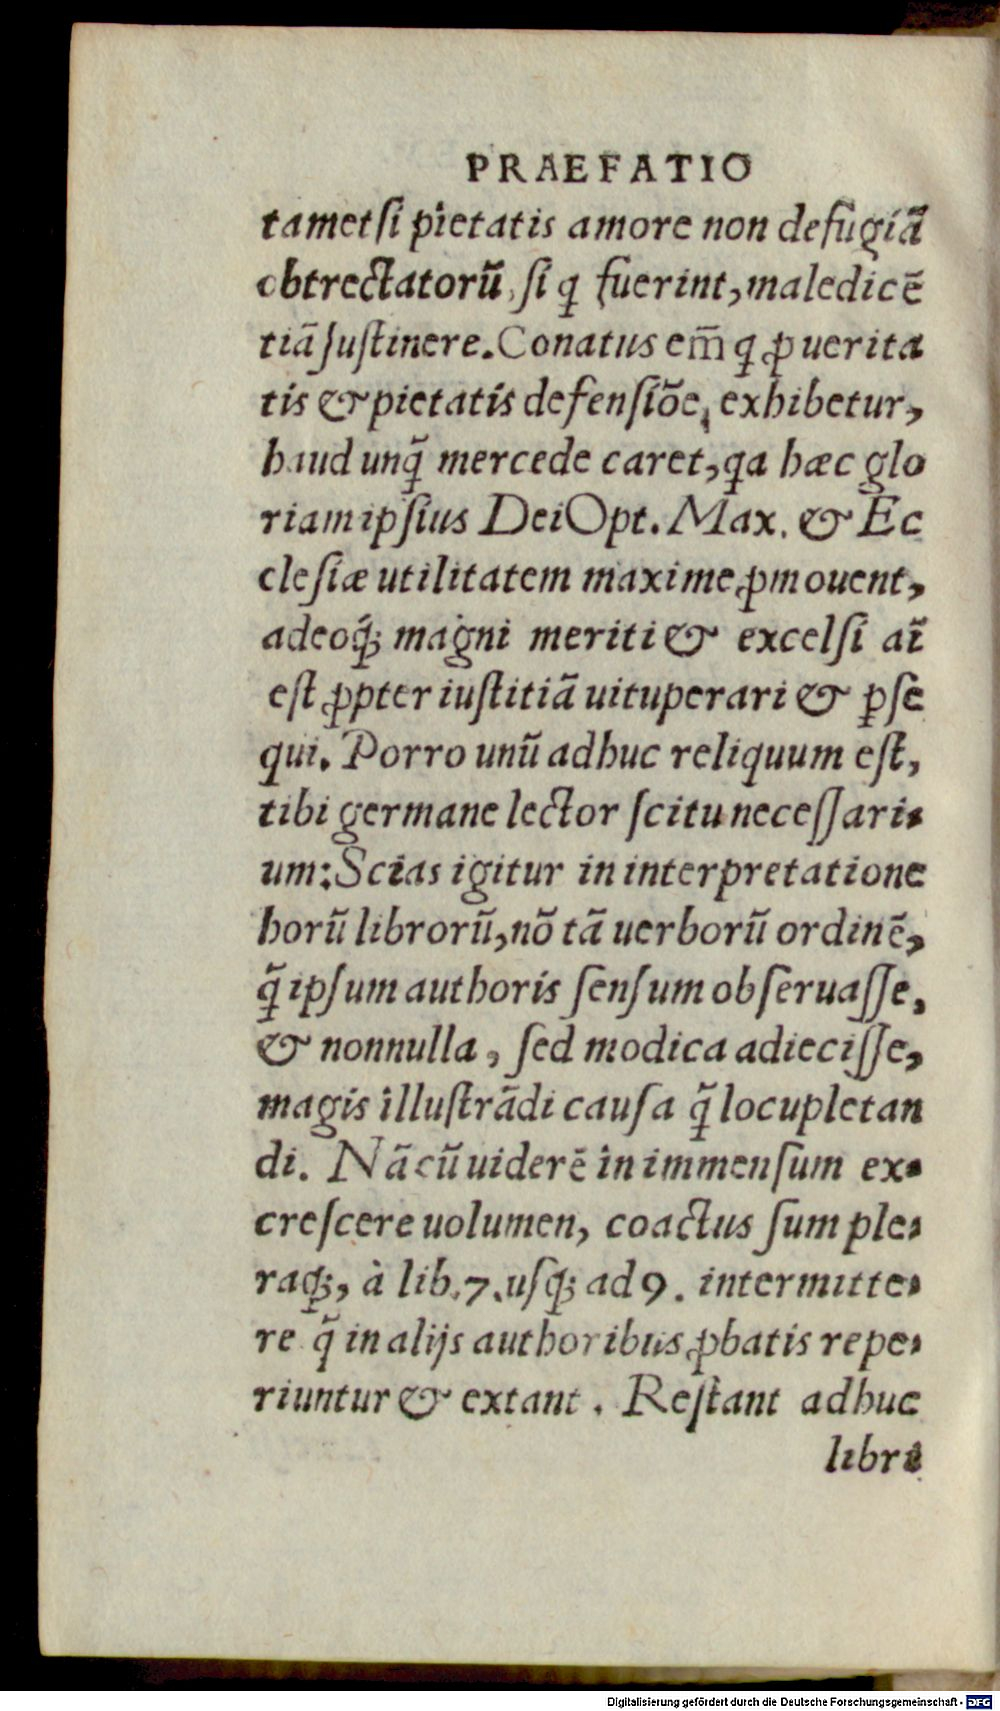 PRAEFATIO
tametſi pietatis amore non defugiã
obtrectatorũ, ſi q fuerint, maledicẽ
tiã ſuſtinere. Conatus em̃ q ꝓ uerita
tis & pietatis defenſiõe, exhibetur,
haud unq̃ mercede caret, qa hæc glo
riam ipſius Dei Opt. Max. & Ec
cleſiæ utilitatem maxime ꝓmouent,
adeoq̃; magni meriti & excelſi aĩ
eſt ꝓpter iuſtitiã uituperari & ꝑſe
qui. Porro unũ adhuc reliquum eſt,
tibi germane lector ſcitu neceſſari-
um: Scias igitur in interpretatione
horũ librorũ, nõ tã uerborũ ordinẽ,
q̃ ipſum authoris ſenſum obſeruaſſe,
& nonnulla, ſed modica adieciſſe,
magis illuſtrãdi cauſa q̃ locupletan
di. Nã cũ uiderẽ in immenſum ex-
creſcere uolumen, coactus ſum ple-
raq;, à lib. 7. uſq; ad 9. intermitte-
re q̃ in alijs authoribus ꝓbatis repe-
riuntur & extant. Reſtant adhuc
libri
Digitalisierung gefördert durch die Deutsche Forschungsgemeinschaft - DFG